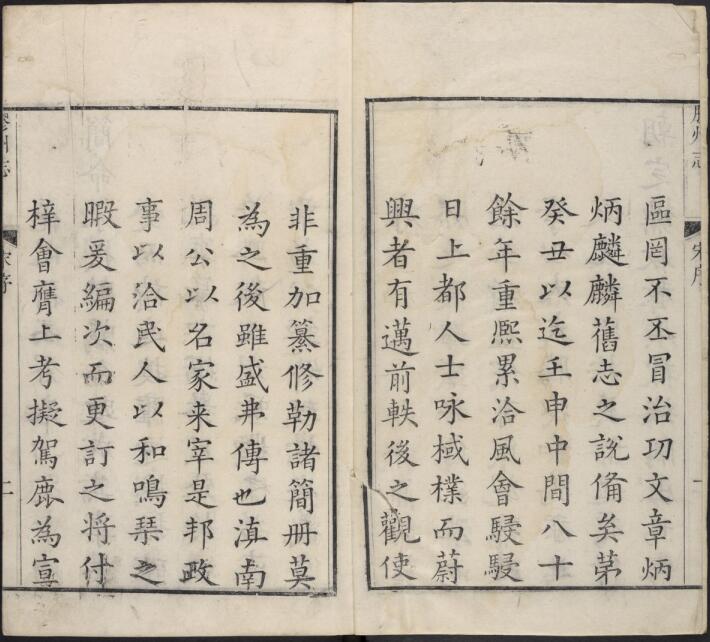 膠州志
宋序
一
區罔不丕冒治功文章炳
炳麟麟舊志之說備矣苐
癸丑以迄壬申中間八十
餘年重熙累洽風會駸駸
日上都人士咏棫樸而蔚
興者有邁前軼後之觀使
非重加纂修勒諸簡冊莫
為之後雖盛弗傳也滇南
周公以名家来宰是邦政
事以洽民人以和鳴琴之
暇爰編次而更訂之將付
梓會膺上考擬駕鹿為宣
膠州志
宋序
二